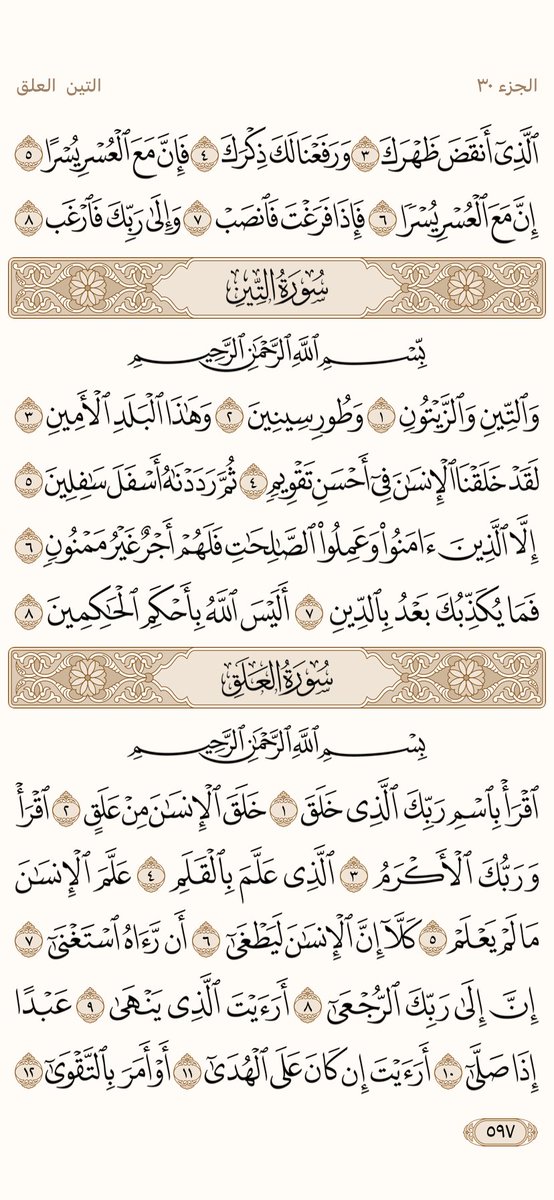 الجزء ٣٠
التين العلق
ٱلَّذِيٓ أَنقَضَ ظَهْرَكَ ٣ وَرَفَعْنَا لَكَ ذِكْرَكَ ٤ فَإِنَّ مَعَ ٱلْعُسْرِ يُسْرًا ٥
إِنَّ مَعَ ٱلْعُسْرِ يُسْرًا ٦ فَإِذَا فَرَغْتَ فَٱنصَبْ ٧ وَإِلَىٰ رَبِّكَ فَٱرْغَب ٨
سُورَةُ التِّينِ
بِّسْمِ ٱللَّهِ ٱلرَّحْمَٰنِ ٱلرَّحِيمِ
وَٱلتِّينِ وَٱلزَّيْتُونِ ١ وَطُورِ سِينِينَ ٢ وَهَٰذَا ٱلْبَلَدِ ٱلْأَمِينِ ٣
لَقَدْ خَلَقْنَا ٱلْإِنسَٰنَ فِيٓ أَحْسَنِ تَقْوِيمٍ ٤ ثُمَّ رَدَدْنَٰهُ أَسْفَلَ سَٰفِلِينَ ٥
إِلَّا ٱلَّذِينَ ءَامَنُوا۟ وَعَمِلُوا۟ ٱلصَّٰلِحَٰتِ فَلَهُمْ أَجْرٌ غَيْرُ مَمْنُونٍ ٦
فَمَا يُكَذِّبُكَ بَعْدُ بِٱلدِّينِ ٧ أَلَيْسَ ٱللَّهُ بِأَحْكَمِ ٱلْحَٰكِمِينَ ٨
سُورَةُ العَلَقِ
بِسْمِ ٱللَّهِ ٱلرَّحْمَٰنِ ٱلرَّحِيمِ
ٱقْرَأْ بِٱسْمِ رَبِّكَ ٱلَّذِى خَلَقَ ١ خَلَقَ ٱلْإِنسَٰنَ مِنْ عَلَقٍ ٢ ٱقْرَأْ
وَرَبُّكَ ٱلْأَكْرَمُ ٣ ٱلَّذِى عَلَّمَ بِٱلْقَلَمِ ٤ عَلَّمَ ٱلْإِنسَٰنَ
مَا لَمْ يَعْلَمْ ٥ كَلَّآ إِنَّ ٱلْإِنسَٰنَ لَيَطْغَىٰٓ ٦ أَن رَّءَاهُ ٱسْتَغْنَىٰٓ ٧
إِنَّ إِلَىٰ رَبِّكَ ٱلرُّجْعَىٰٓ ٨ أَرَءَيْتَ ٱلَّذِى يَنْهَىٰ ٩ عَبْدًا
إِذَا صَلَّىٰٓ ١٠ أَرَءَيْتَ إِن كَانَ عَلَى ٱلْهُدَىٰٓ ١١ أَوْ أَمَرَ بِٱلتَّقْوَىٰٓ ١٢
٥٩٧